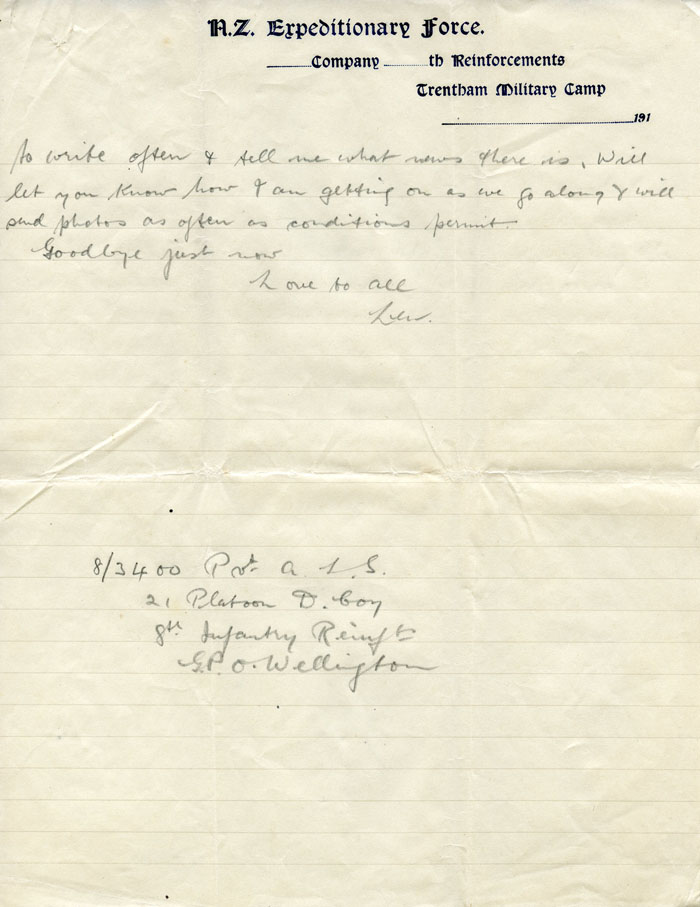 N.Z. Expeditionary Force.
Company th Reinforcements
Trentham Military Camp
191
to write often & tell me what news there is, Will
let you know how I am getting on as we go along & will
send photos as often as conditions permit.
Goodbye just now
Love to all
Lew.
8/3400 Pvt. A. L. S.
21 Platoon D. Coy
8th Infantry Reinfts
G.P.O. Wellington